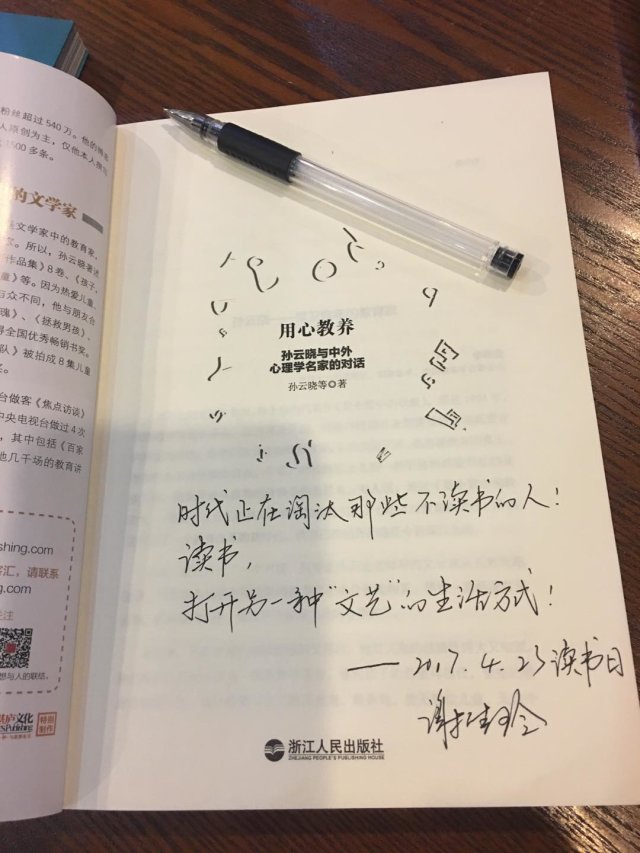 粉丝超过540万。他的博客
人原创为主，仅他本人撰写
1500多条。
的文学家
文学家中的教育家，
所以，孙云晓著述
作品集》8卷、《孩子，
童》等。因为热爱儿童，
与众不同，他与朋友合
魂》、《拯救男孩》、
得全国优秀畅销书奖。
队》被拍成8集儿童
奖。
台做客《焦点访谈》
中央电视台做过4次
，其中包括《百家
他几千场的教育讲
shing.com
客汇，请联系
ng.com
关注
想与人的联结。
湛庐文化
特别
制作
用心教养
孙云晓与中外
心理学名家的对话
孙云晓等◎著
时代正在淘汰那些不读书的人！
读书，
打开另一种“文艺”的生活方式！
——2017.4.23读书日
浙江人民出版社
ZHEJIANG PEOPLE'S PUBLISHING HOUSE